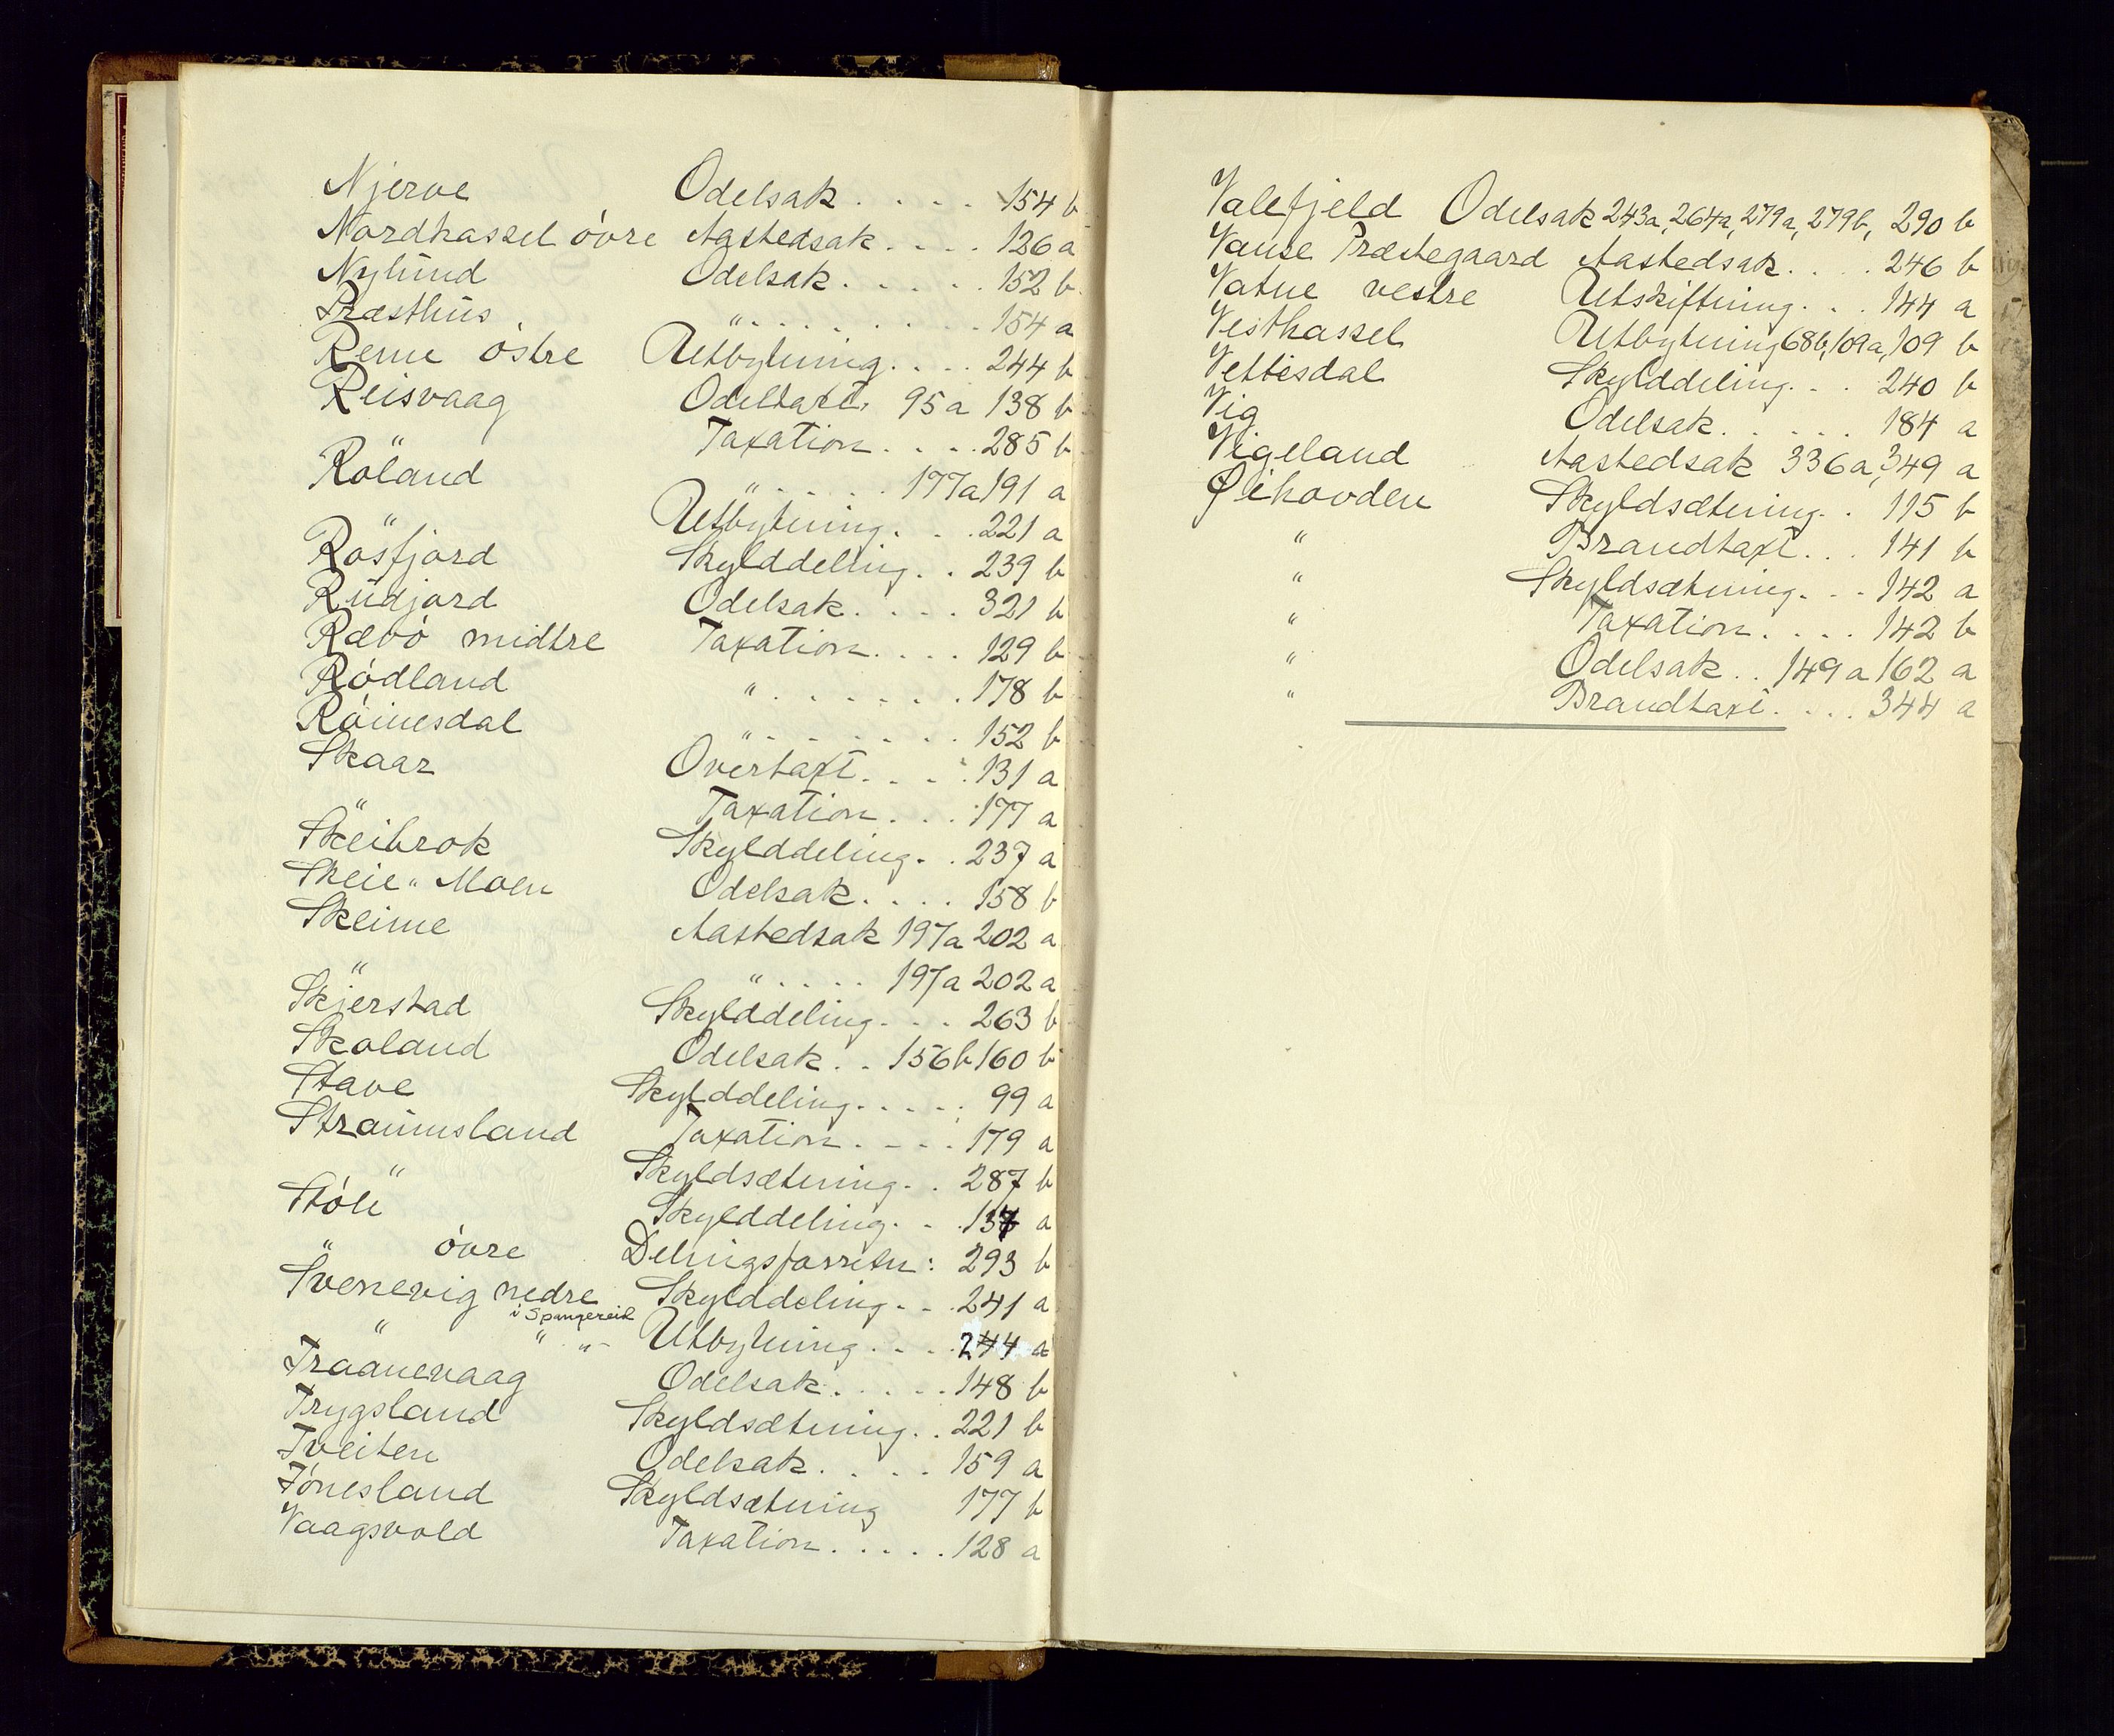 Njerve Odelsak . . . . 154 b
Nordhassel övre Aastedsak . . . . 126 a
Nylund Odelsak . . . . . 152 b
Præsthus " . . . . . . . . 154 a
Reme östre Utbytning . . . . 244 b
Reisvaag Odeltaxt. 95 a 138 b
" Taxation . . . . 285 b
Röland " . . . . . 177a 191 a
" Utbytning . . . 221 a
Rösfjord Skylddeling . . 239 b
Rudjord Odelsak . . . . 321 b
Rævö midtre Taxation . . . . 129 b
Rödland " . . . . . . . 178 b
Röinesdal " . . . . . . . 152 b
Skaar Overtaxt . . . . 131 a
" Taxation . . . 177 a
Skeibrok Skylddeling . . 237 a
Skeie " Moen Odelsak . . . . 158 b
Skeime Aastedsak 197a 202 a
" " . . . . . 197a 202 a
Skjerstad Skylddeling . . . 263 b
Skoland Odelsak . . 156b 160 b
Stave Skylddeling . . . . . 99 a
Straumsland Taxation . . . . 179 a
" Skyldsætning . . 287 b
Stöle Skylddeling . . . 137 a
" övre Delingsforretn: 293 b
Svenevig nedre Skylddeling . . . 241 a
i Spangereid
" " " Utbytning . . . . 244 a
Traanevaag Odelsak . . . . . 148 b
Trygsland Skyldsætning . . 221 b
Tveiten Odelsak . . . . 159 a
Tönesland Skyldsætning 177 b
Vaagsvold Taxation . . . . . 128 a
Valefjeld Odelsak 243a, 264a, 279a, 279b, 290 b
Vanse Præstegaard Aastedsak . . . . 246 b
Vatne vestre Utskiftning . . . 144 a
Vesthassel Utbytning 68b, 109a, 109 b
Vettesdal Skylddeling . . . 240 b
Vig Odelsak . . . . . 184 a
Vigeland Aastedsak 336a, 349 a
Øihovden Skyldsætning . . 115 b
" Brandtaxt . . . 141 b
" Skyldsætning . . . 142 a
" Taxation . . . . 142 b
" Odelsak . . 149 a 162 a
" Brandtaxt . . . . 344 a